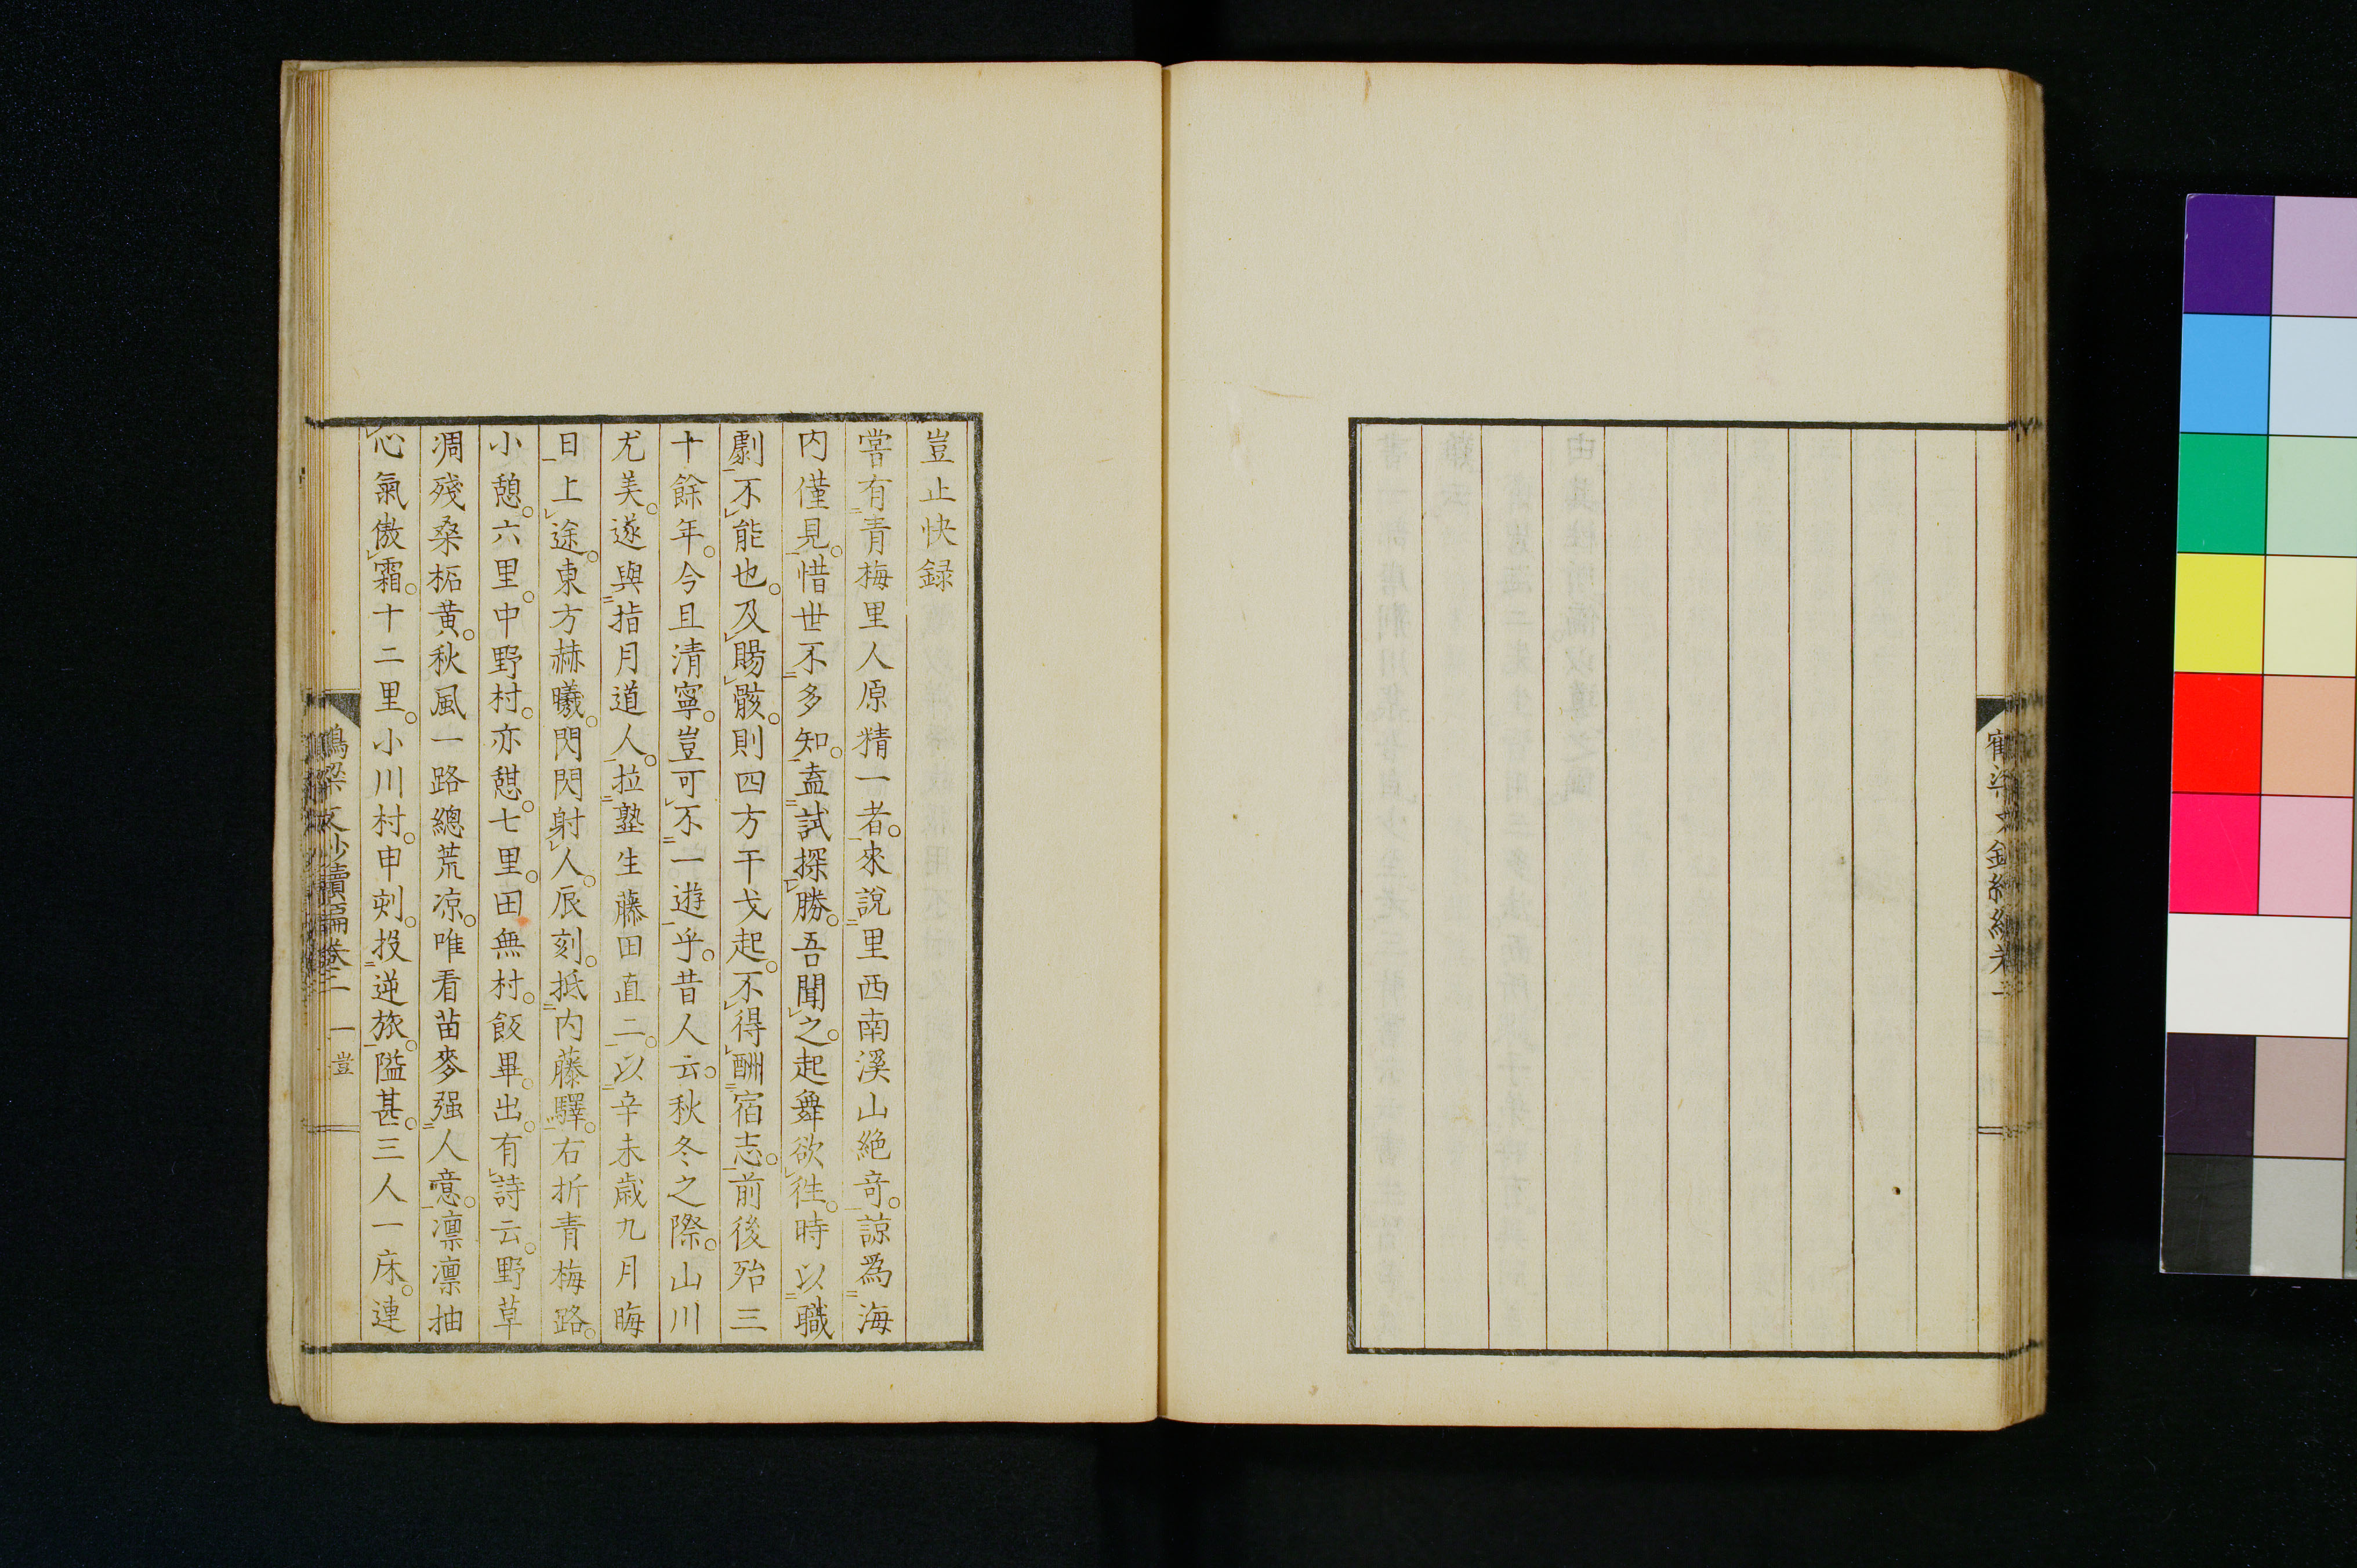 豈止快録
嘗有青梅里人原精一者。來說里西南溪山絶奇。諒爲海
内僅見。惜世不多知。盍試探勝。吾聞之。起舞欲徃。時以職
劇不能也。及賜骸。則四方干戈起。不得酬宿志。前後殆三
十餘年。今且清寧。豈可不一遊乎。昔人云。秋冬之際。山川
尤美。遂與指月道人。拉塾生藤田直二。以辛未歳九月晦
日上途。東方赫曦。閃閃射人。辰刻。抵内藤驛。右折青梅路。
小憩。六里。中野村。亦憇。七里。田無村。飯畢。出。有詩云。野草
凋殘桑柘黄。秋風一路總荒凉。唯看苗麥强人意。凛凛抽
心氣傲霜。十二里。小川村。申刻。投逆旅。隘甚。三人一床。連
文鈔續編卷二 一 豈